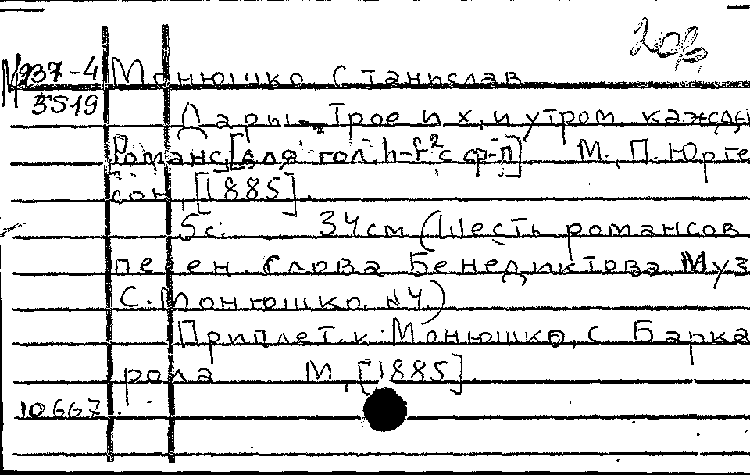 20р
М237-4 Монюшко Станислав
3519
Дары. Трое их, и утром кажды
Романс, [для гол. h-f² с ф-п] М., П. Юрге
сон, [1885].
5с. 34см (Шесть романсов
песен. Слова Бенедиктова Муз
С. Монюшко. N4)
Приплет. к: Монюшко, С. Барка
рола М., [1885].
10667.